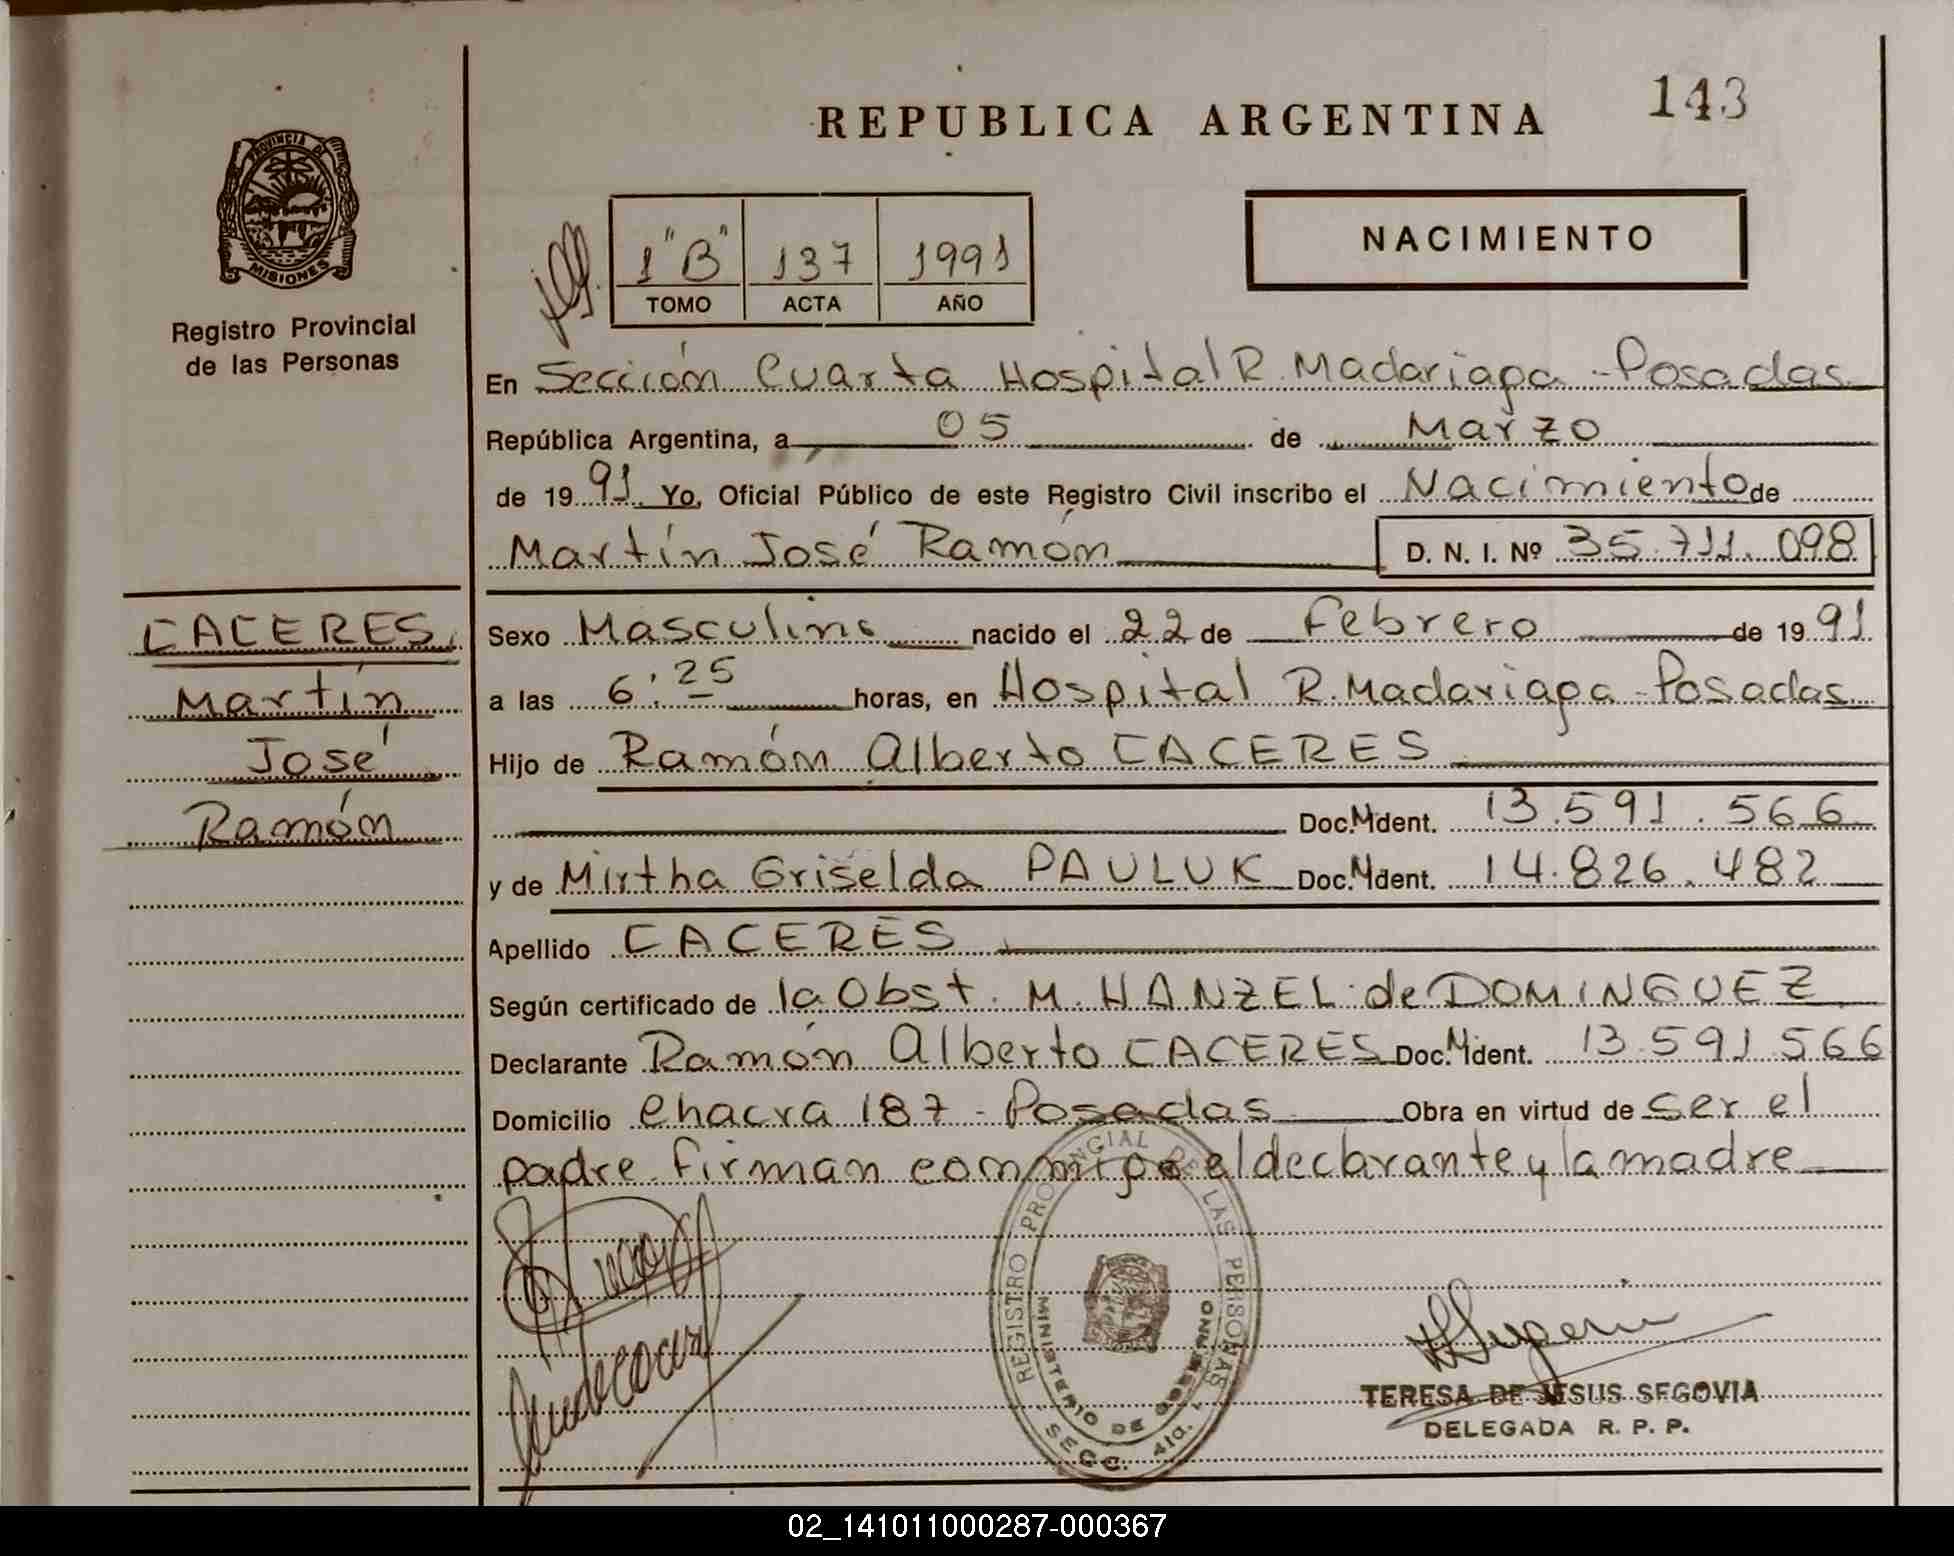 143
REPUBLICA ARGENTINA
PROVINCIA DE
MISIONES
Registro Provincial
de las Personas
1 "B" 137 1991
TOMO ACTA AÑO
NACIMIENTO
En Sección Cuarta Hospital R. Madariaga - Posadas
República Argentina, a 05 de Marzo
de 1991. Yo, Oficial Público de este Registro Civil inscribo el Nacimiento de
Martín José Ramón D. N. I. Nº 35.711.098
CACERES
Martín
José
Ramón
Sexo Masculino nacido el 22 de Febrero de 1991
a las 6:25 horas, en Hospital R. Madariaga - Posadas
Hijo de Ramón Alberto CACERES
Doc. M Ident. 13.591.566
y de Mirtha Griselda PAULUK Doc. M Ident. 14.826.482
Apellido CACERES
Según certificado de la Obst. M. HANZEL de DOMINGUEZ
Declarante Ramón Alberto CACERES Doc. M Ident. 13.591.566
Domicilio Chacra 187 - Posadas Obra en virtud de ser el
padre. Firman conmigo el declarante y la madre
REGISTRO PROVINCIAL DE LAS PERSONAS
MINISTERIO DE GOBIERNO
SECC. 4ta.
TERESA DE JESUS SEGOVIA
DELEGADA R. P. P.
02_141011000287-000367